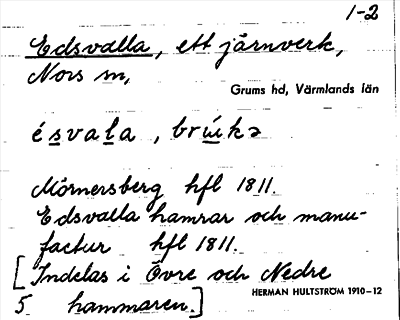 1-2
Edsvalla, ett järnverk,
Nors sn,
Grums hd, Värmlands län
ésvala, brúkə
Mörnersberg hfl 1811.
Edsvalla hamrar och manu-
factur hfl 1811.
[Indelas i Övre och Nedre
5 hammaren.]
HERMAN HULTSTRÖM 1910-12